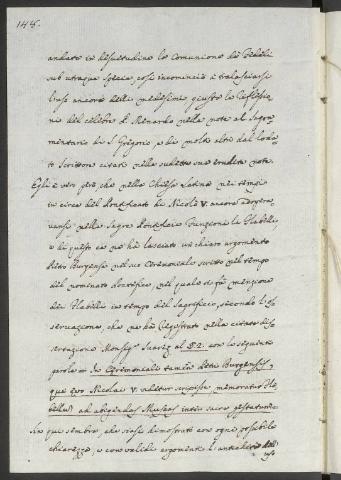 144.
andato in desuetudine la Comunione de' Fedeli
sub utraque specie, così incominciò a tralasciarsi
l'uso ancora delli medesimi, giusta la riflessio-
ne del celebre P. Menardo nelle note al Sagra-
mentario di S. Gregorio, e di molti altri dal loda-
to Scrittore citati nella suddetta sua erudita nota.
Egli è vero però che nella Chiesa Latina nei tempi
in circa del Pontificato di Nicolò V. ancora adopra-
vansi nelle Sagre Pontificie Funzioni li Flabelli,
e di questo ce ne ha lasciato un chiaro argomento
Pietro Burgense nel suo Ceremoniale scritto nel tempo
del nominato Pontefice, nel quale si fà menzione
dei Flabelli in tempo del Sagrificio, secondo l'os-
servazione, che ne ha registrato nella citata dis-
sertazione Monsig.r Suarez al §. 2. con le seguenti
parole = In Ceremoniali tamen Petri Burgensis,
que evo Nicolai V. videtur scripsisse, memorantur Fla-
bella ad abigendas Muscas inter sacra gestatum.
Sin qui sembra, che siasi dimostrato con ogni possibile
chiarezza, e con validi argomenti l'antichità dell'
uso